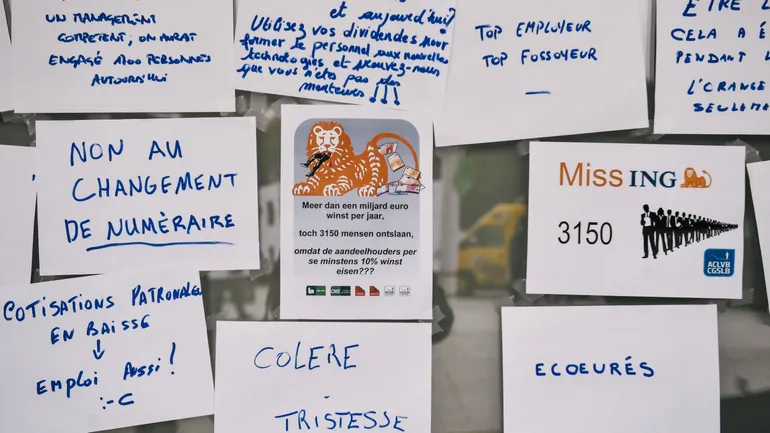 UN MANAGEMENT
COMPETENT, ON AURAIT
ENGAGÉ 1200 PERSONNES
AUJOURD'HUI
et aujourd'hui?
Utilisez vos dividendes pour
former le personnel aux nouvelles
technologies et prouvez-nous
que vous n'êtes pas des
menteurs !!!
TOP EMPLOYEUR
TOP FOSSOYEUR
CELA A
PENDANT
L'ORANGE
SEULEM
NON AU
CHANGEMENT
DE NUMÉRAIRE
Meer dan een miljard euro
winst per jaar,
toch 3150 mensen ontslaan,
omdat de aandeelhouders per
se minstens 10% winst
eisen???
Miss ING
3150
ACLVB
CGSLB
COTISATIONS PATRONALES
EN BAISSE
↓
EMPLOI AUSSI !
:-C
COLERE
-
TRISTESSE
ECOEURÉS